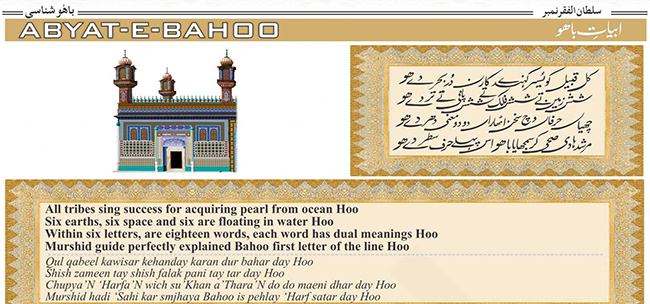 باھُو شناسی
سلطان الفقر نمبر
ABYAT-E-BAHOO
ابیاتِ باھو
کل قبیل کویسر کہندے کارن در بحر دے ھو
شش زمین تے شش فلک تے شش پانی تے تردے ھو
چھیاں حرفاں وچ سخن اٹھاراں دو دو معنی دھردے ھو
مرشد ہادی صحی کر سمجھایا باھو اس پہلے حرف سطر دے ھو
All tribes sing success for acquiring pearl from ocean Hoo
Six earths, six space and six are floating in water Hoo
Within six letters, are eighteen words, each word has dual meanings Hoo
Murshid guide perfectly explained Bahoo first letter of the line Hoo
Qul qabeel kawisar kehanday karan dur bahar day Hoo
Shish zameen tay shish falak pani tay tar day Hoo
Chupya'N 'Harfa'N wich su'Khan a'Thara'N do do maeni dhar day Hoo
Murshid hadi 'Sahi kar smjhaya Bahoo is pehlay 'Harf satar day Hoo